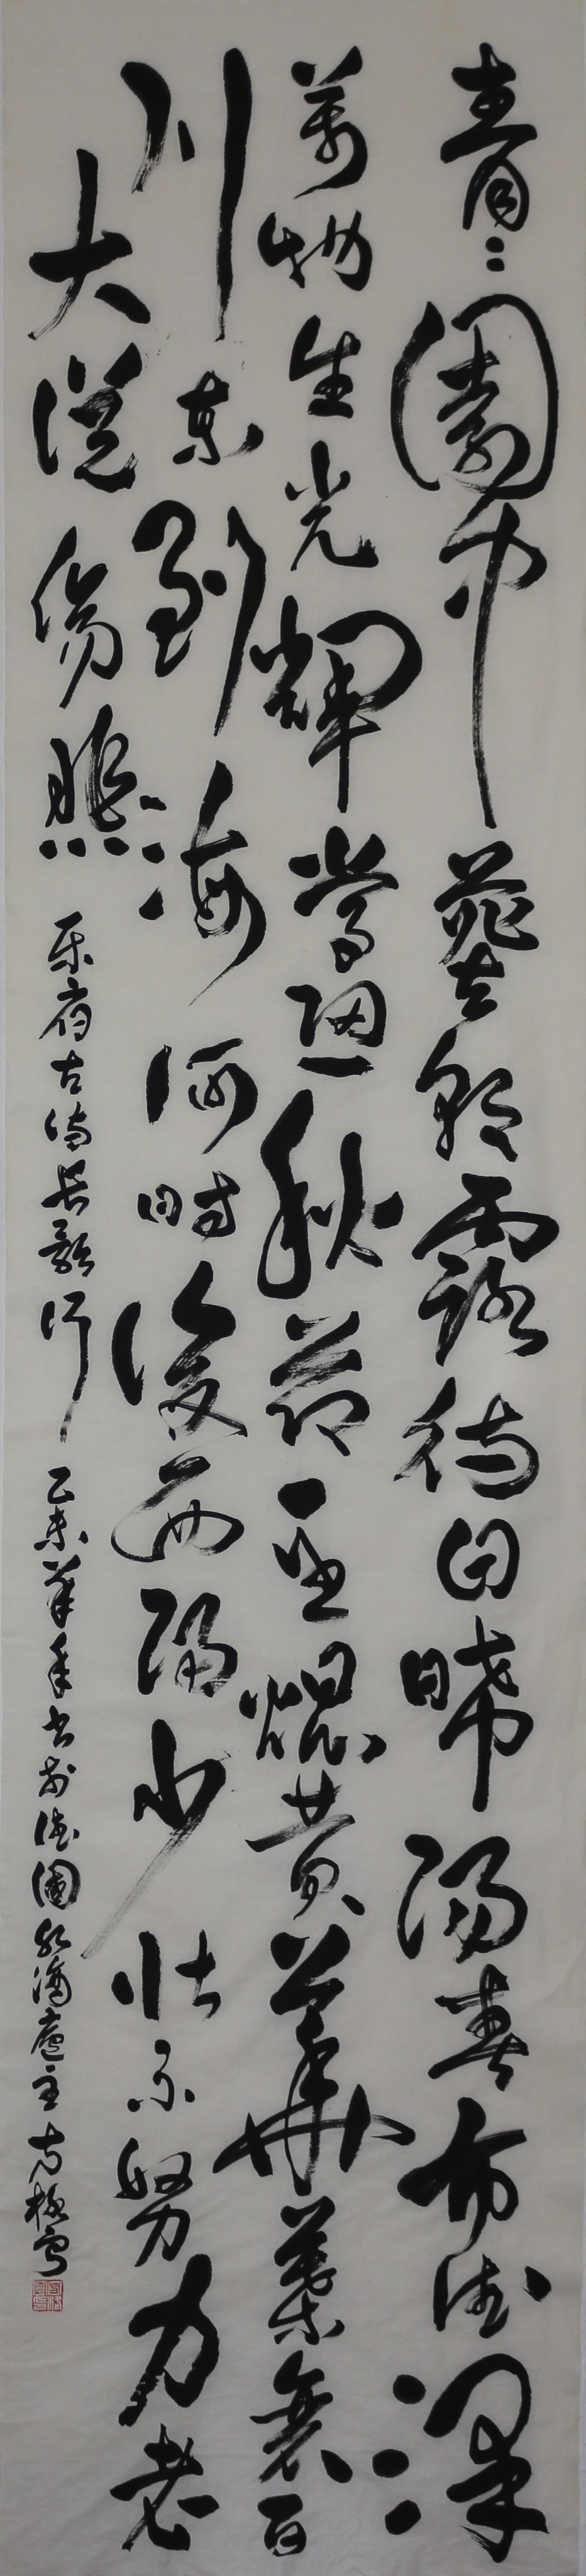 青々園中葵朝露待日晞陽春布德澤
萬物生光輝常恐秋節至焜黃華葉衰百
川東到海何時復西歸少壯不努力老
大徒傷悲
樂府古詩長歌行 乙未羊年書於德國 庵主